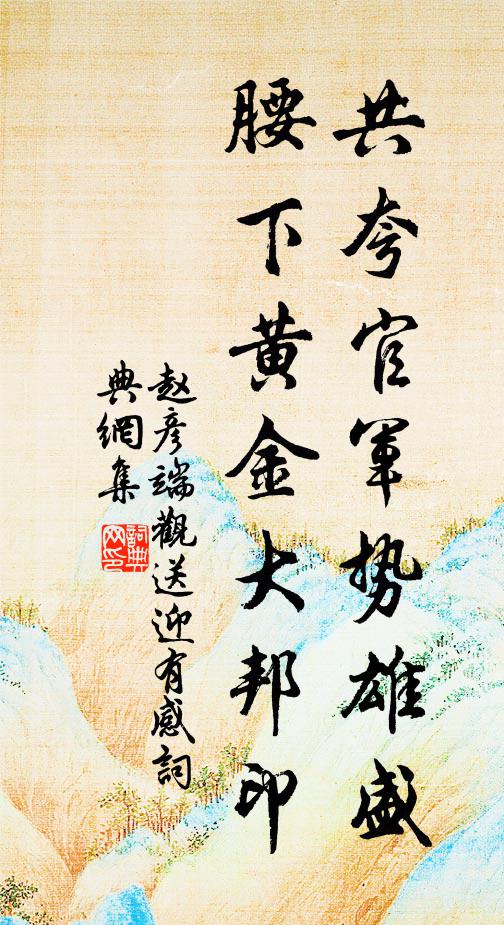 共夸官军势雄盛
腰下黄金大邦印
赵彦端觀送迎有感詞
典網集
詞典
网印